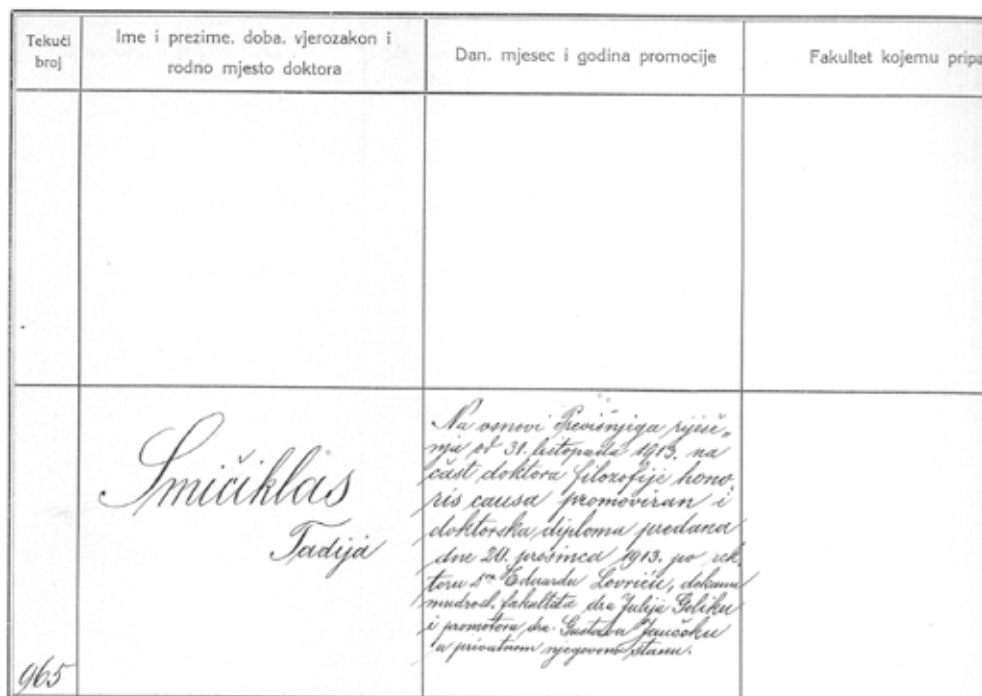 Tekući
broj
Ime i prezime, doba, vjerozakon i
rodno mjesto doktora
Dan, mjesec i godina promocije
Fakultet kojemu pripa
Smičiklas
Tadija
Na osnovi Previšnjiga riješe„
nja od 31. listopada 1913. na
čast doktora filozofije hono„
ris causa promoviran i
doktorska diploma predana
dne 20. prosinca 1913. po rek„
toru dru Eduardu Lovriću, dekanu
mudrosl. fakulteta dra Julija Goliku
i promotora dra. Gustava Janečeku
u privatnom njegovom stanu.
965